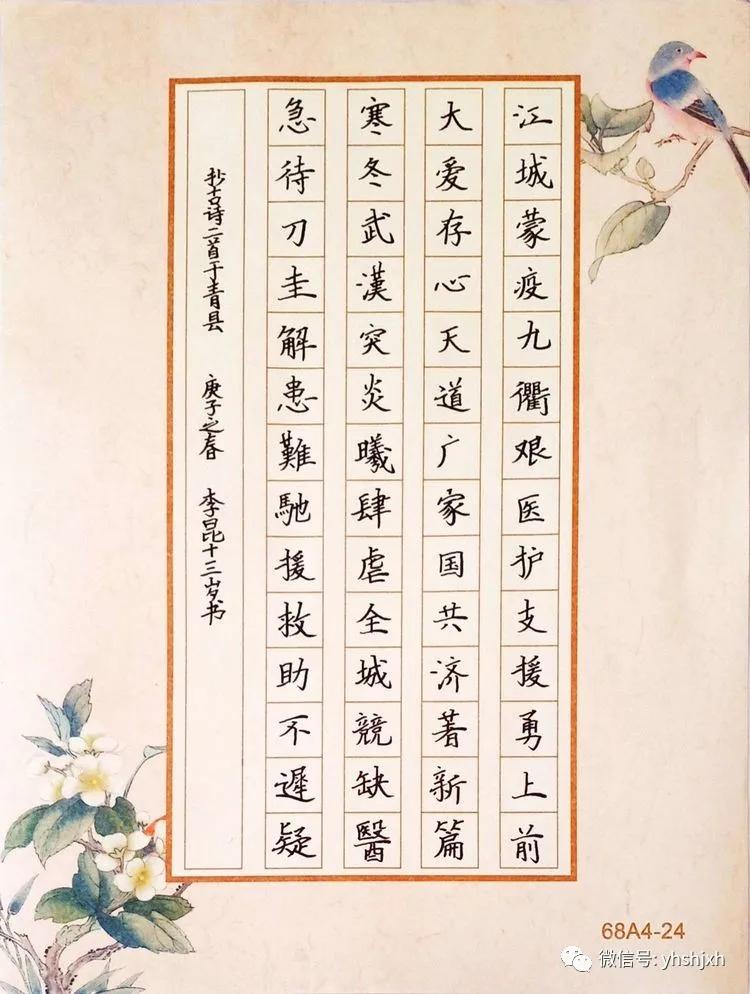 江城蒙疫九衢艰医护支援勇上前
大爱存心天道广家国共济著新篇
寒冬武漢突炎曦肆虐全城競缺醫
急待刀圭解患難馳援救助不遲疑
抄古诗二首于青县 庚子之春 李昆十三岁书
68A4-24
微信号: yhshjxh